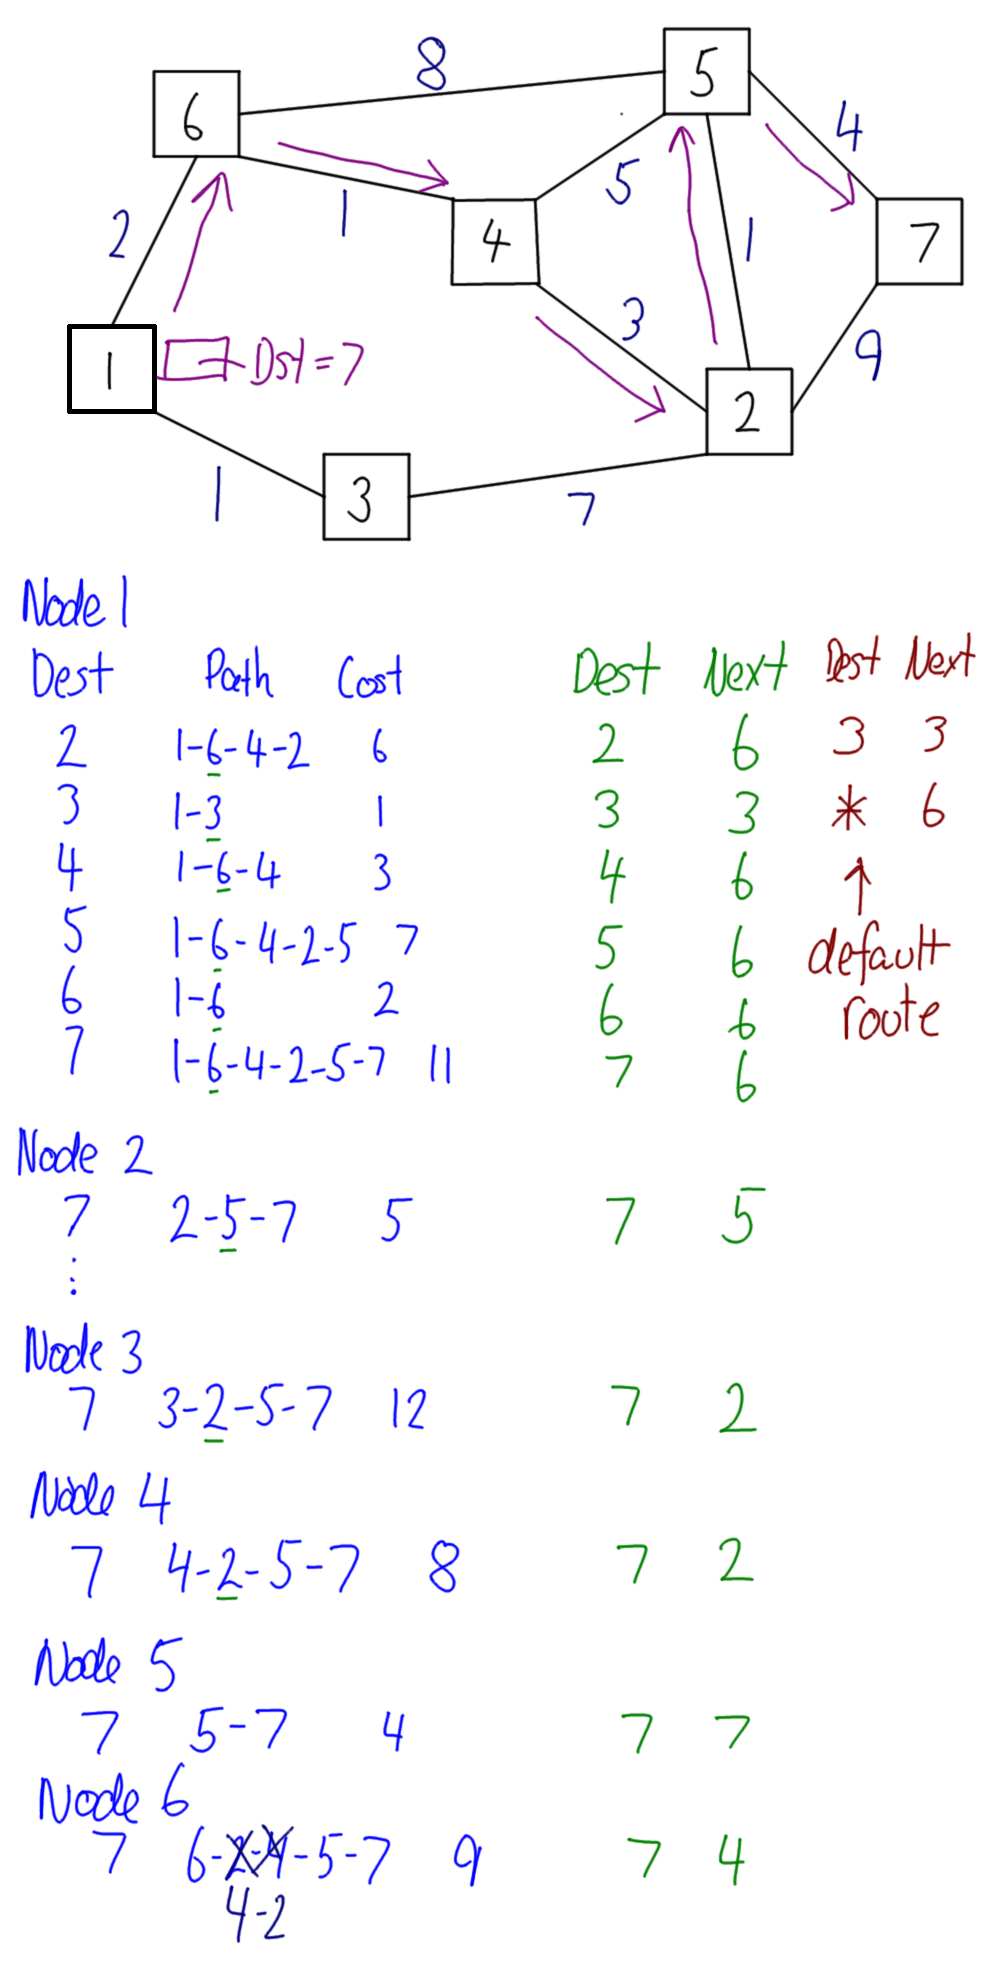 8
5
6
4
2
1
5
4
1
7
3
1
Dst = 7
9
2
1
3
7
Node 1
Dest Path Cost Dest Next Dest Next
2 1-6-4-2 6 2 6 3 3
3 1-3 1 3 3 * 6
4 1-6-4 3 4 6 ↑
5 1-6-4-2-5 7 5 6 default
6 1-6 2 6 6 route
7 1-6-4-2-5-7 11 7 6
Node 2
7 2-5-7 5 7 5
⋮
Node 3
7 3-2-5-7 12 7 2
Node 4
7 4-2-5-7 8 7 2
Node 5
7 5-7 4 7 7
Node 6
7 6-2-4-5-7 9 7 4
4-2